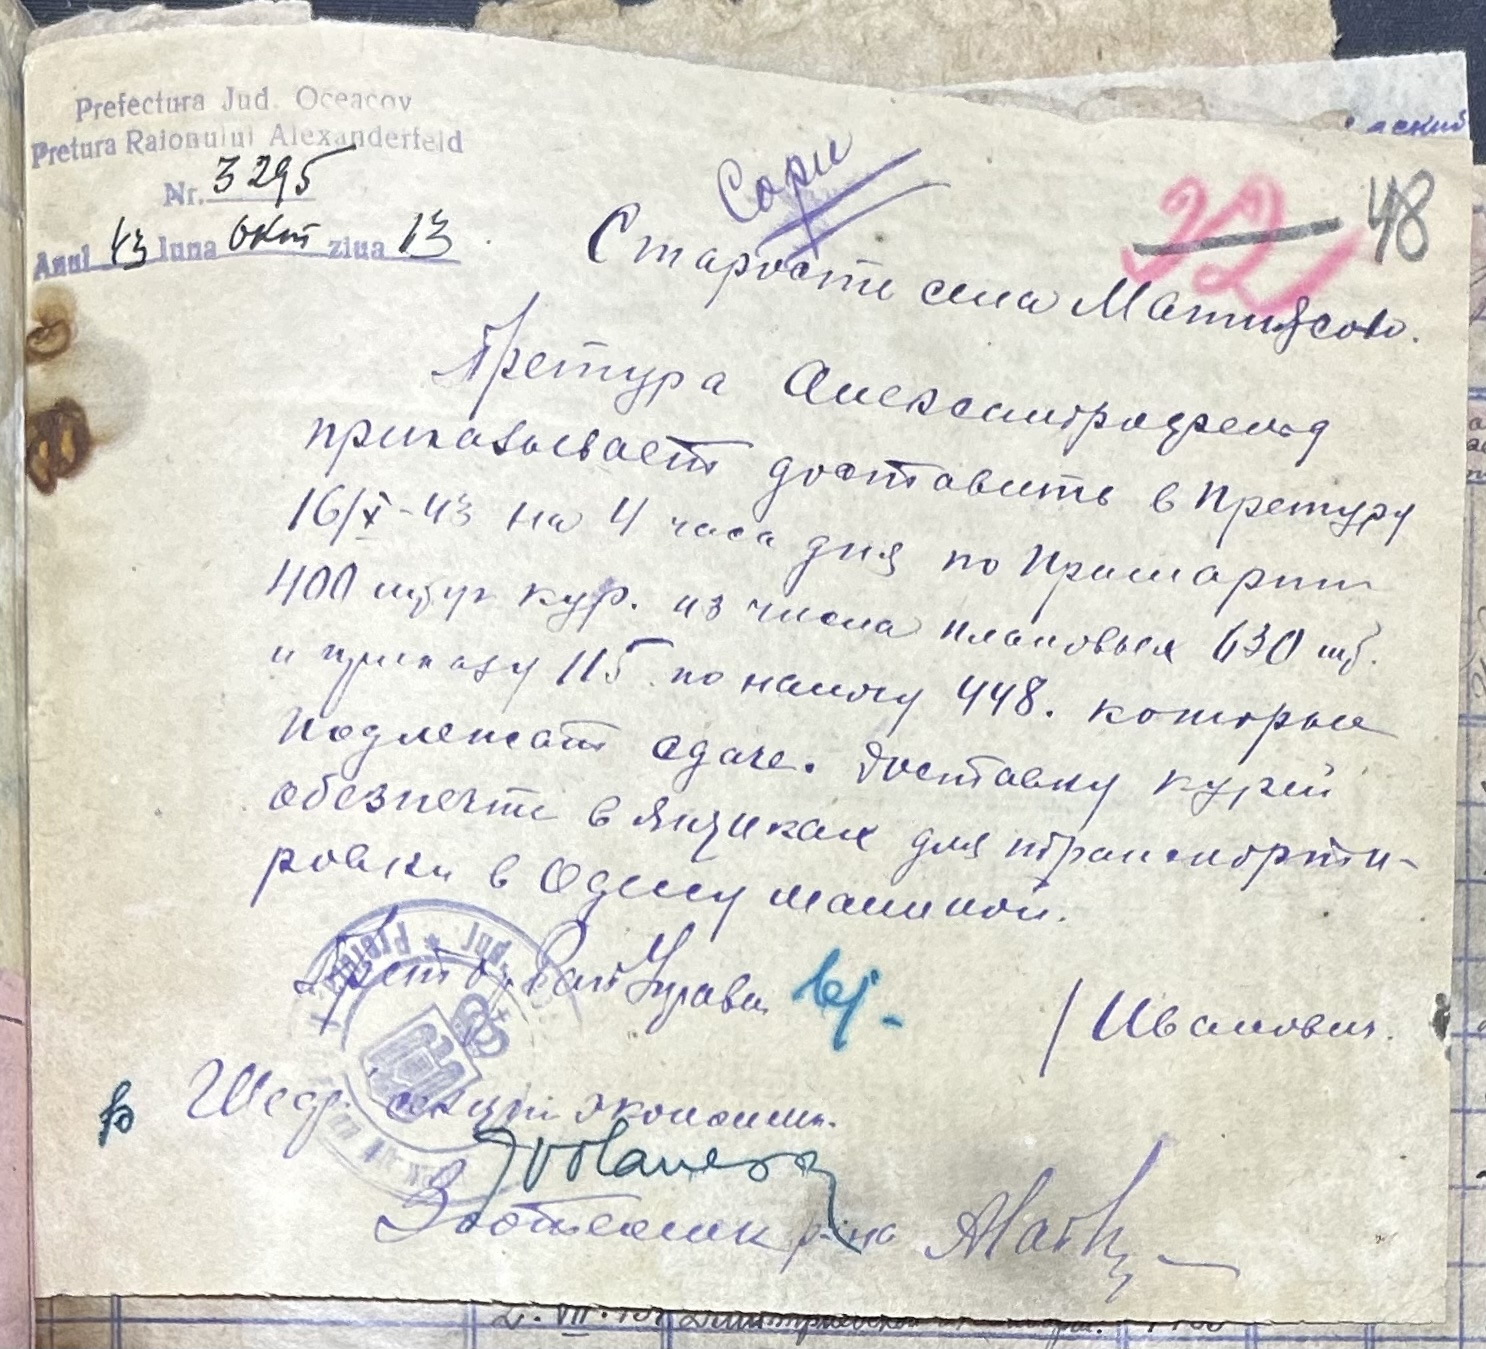 Prefectura Jud. Oceacov
Pretura Raionului Alexanderfeld
Nr. 3295
Anul 43 luna окт ziua 13
32 48
Старосте села Матиясово.
Претура Александрфельд
приказывает доставить в Претуру
16/X-43 на 4 часа дня по Примарии
400 штук кур. из числа плановых 630 шт.
и приказу 115 по налогу 448. которые
подлежат сдаче. Доставку курей
обезпечте в ящиках для транспорти-
ровки в Одессу машиной.
Претор Райуправи
/ Иванович.
Шеф секции економич.
Зоотехник р-на